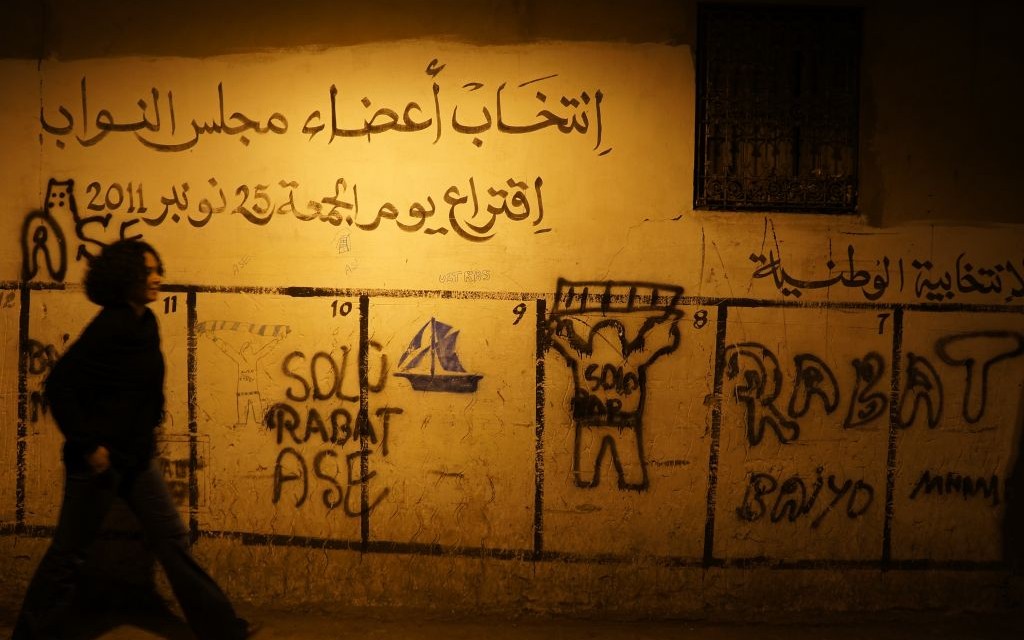 إنتخاب أعضاء مجلس النواب
إقتراع يوم الجمعة 25 نونبر 2011
ASE
الإنتخابية الوطنية
12
11
10
9
8
7
SOLO
RABAT
ASE
SOLO
RABAT
BAIYO